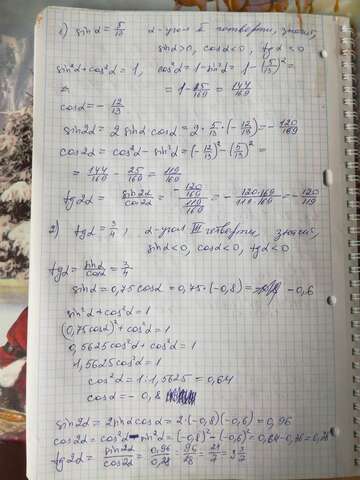 1) sin α = 5/13 α - угол II четверти, значит,
sin α > 0, cos α < 0, tg α < 0
sin²α + cos²α = 1, cos²α = 1 - sin²α = 1 - (5/13)² =
= = 1 - 25/169 = 144/169
cos α = - 12/13
sin 2α = 2 sin α cos α = 2 · 5/13 · (- 12/13) = - 120/169
cos 2α = cos²α - sin²α = (- 12/13)² - (5/13)² =
= 144/169 - 25/169 = 119/169
tg 2α = sin 2α / cos 2α = (- 120/169) / (119/169) = - 120·169 / 119·169 = - 120/119
2) tg α = 3/4 ; α - угол III четверти, значит,
sin α < 0, cos α < 0, tg α < 0
tg α = sin α / cos α = 3/4
sin α = 0,75 cos α = 0,75 · (-0,8) = - 0,6
sin²α + cos²α = 1
(0,75 cos α)² + cos²α = 1
0,5625 cos²α + cos²α = 1
1,5625 cos²α = 1
cos²α = 1 : 1,5625 = 0,64
cos α = - 0,8
sin 2α = 2 sin α cos α = 2 · (-0,8)(-0,6) = 0,96
cos 2α = cos²α - sin²α = (-0,8)² - (-0,6)² = 0,64 - 0,36 = 0,28
tg 2α = sin 2α / cos 2α = 0,96 / 0,28 = 96/28 = 24/7 = 3 3/7